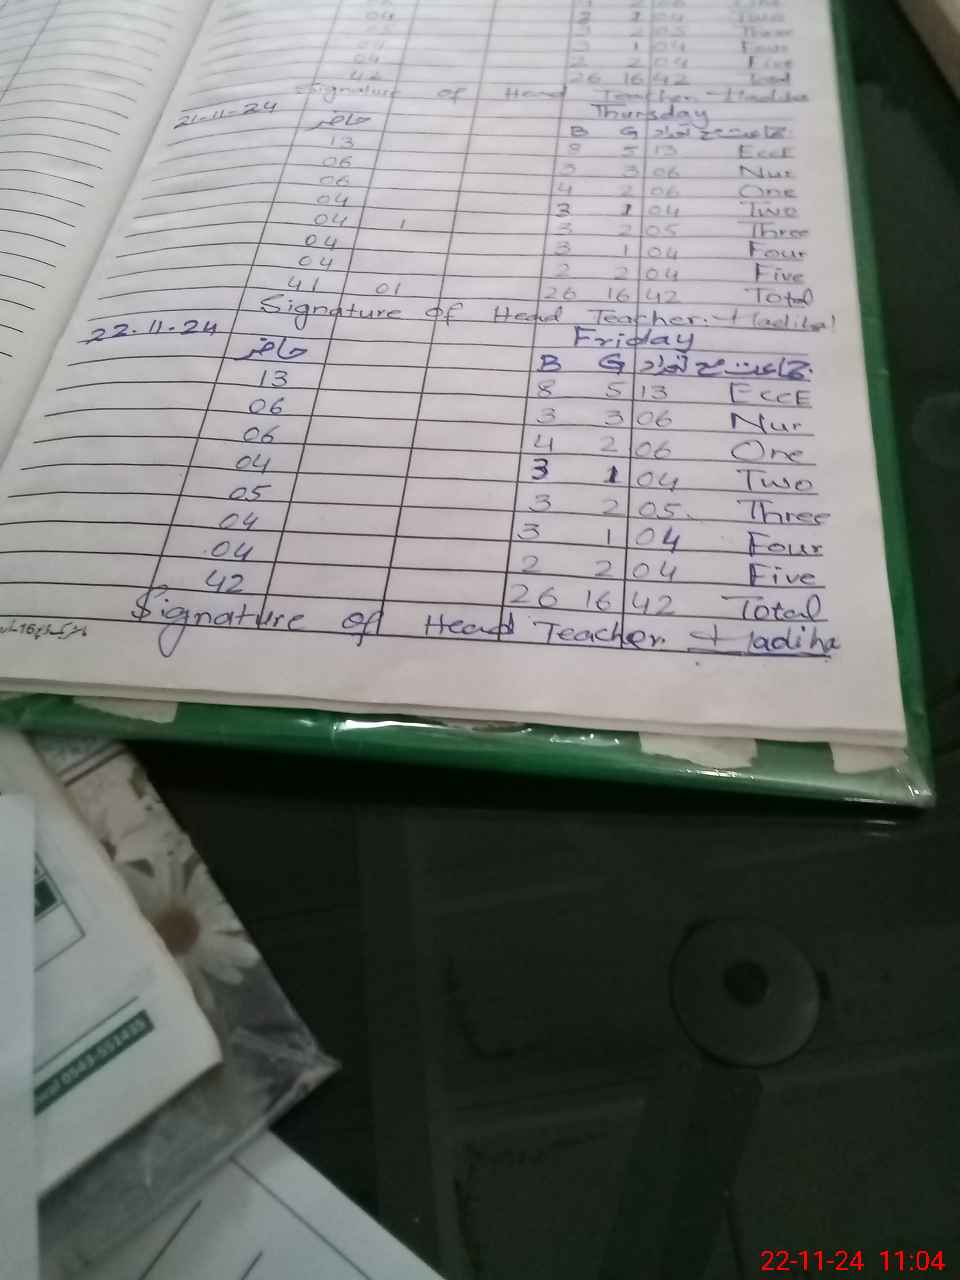 04 2 1 04 Two
04 2 2 04 Five
42 26 16 42 Total
Signature of Head Teacher. Hadiha
21-11-24 Thursday
حاضر B G تعداد جماعت
13 8 5 13 EccE
06 3 3 06 Nur
06 4 2 06 One
04 3 1 04 Two
04 1 3 2 05 Three
04 3 1 04 Four
04 2 2 04 Five
41 01 26 16 42 Total
Signature of Head Teacher. Hadiha
22-11-24 Friday
حاضر B G تعداد جماعت
13 8 5 13 EccE
06 3 3 06 Nur
06 4 2 06 One
04 3 1 04 Two
05 3 2 05 Three
04 3 1 04 Four
04 2 2 04 Five
42 26 16 42 Total
Signature of Head Teacher. Hadiha
22-11-24 11:04